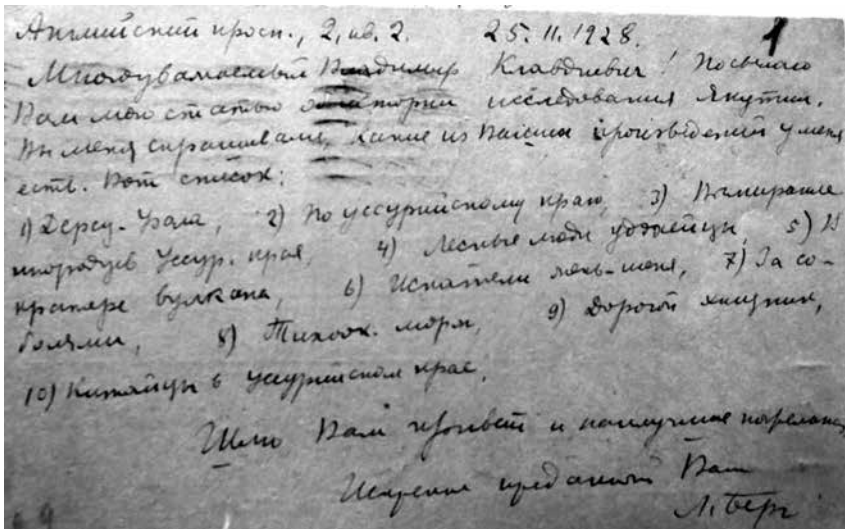 Английский просп., 2, кв. 2. 25.11.1928. 1
Многоуважаемый Владимир Клавдиевич! Посылаю
Вам мою статью об истории исследования Якутии.
Вы меня спрашивали, какие из Ваших произведений у меня
есть. Вот список:
1) Дерсу-Узала, 2) По уссурийскому краю, 3) Вымирание
инородцев Уссур. края, 4) Лесные люди удэхейцы, 5) В
кратере вулкана, 6) Искатели жень-шеня, 7) За со-
болями, 8) Тихоок. морж, 9) Дорогой хищник,
10) Китайцы в уссурийском крае.
Шлю Вам привет и наилучшие пожелания
Искренне преданный Вам
Л. Берг